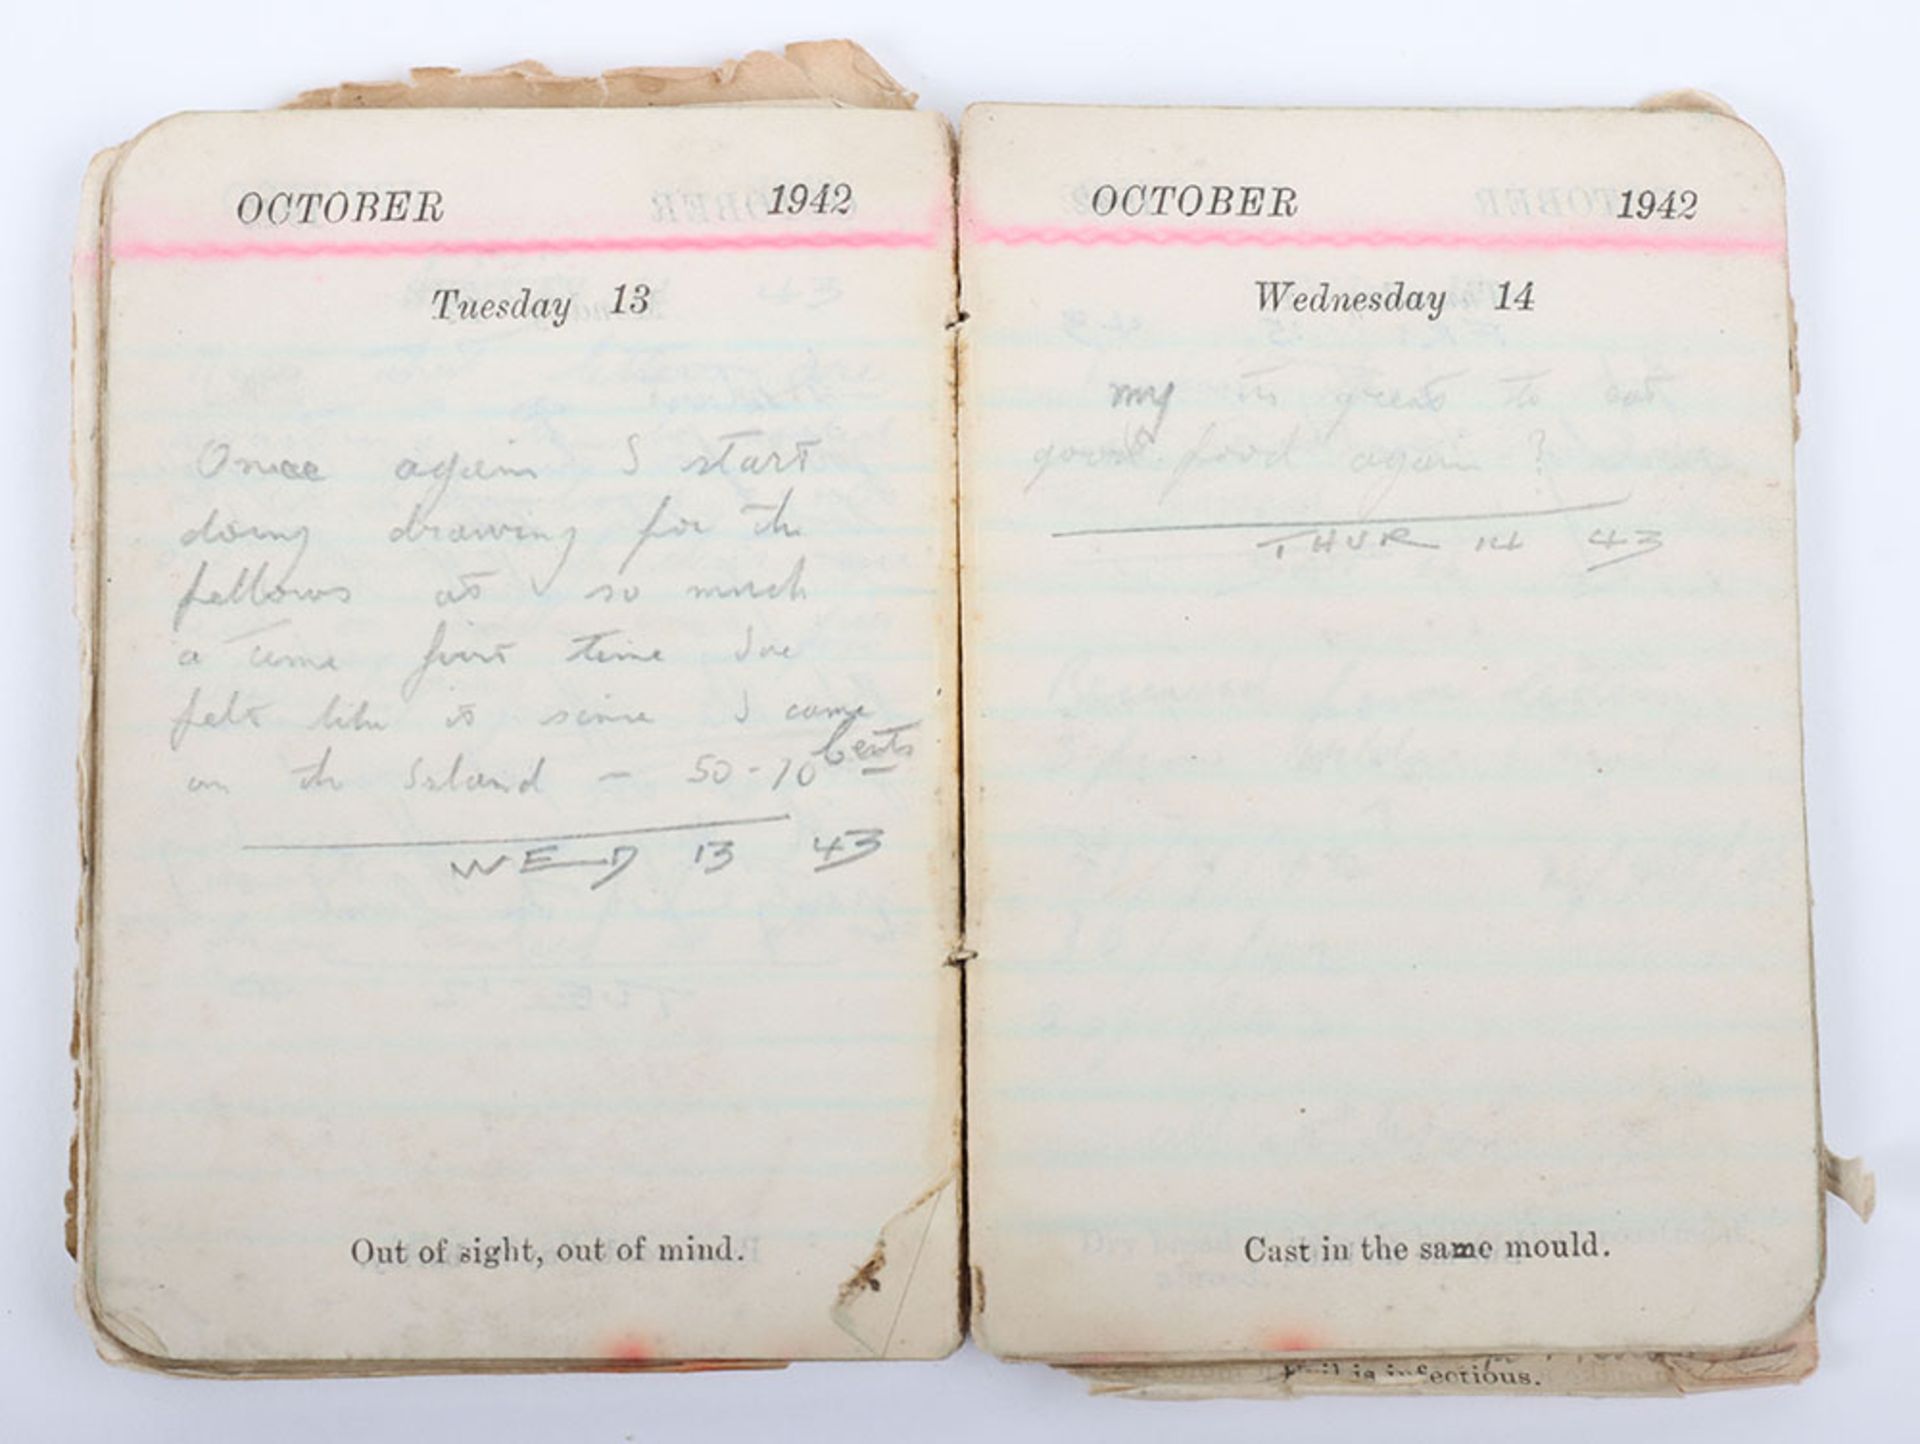 OCTOBER 1942
Tuesday 13
Once again I start
doing drawing for the
fellows at so much
a time first time I've
felt like it since I came
on the Island – 50-70 cents
WED 13 43
Out of sight, out of mind.
OCTOBER 1942
Wednesday 14
my it's great to eat
good food again ?
THUR 14 43
Cast in the same mould.
infectious.